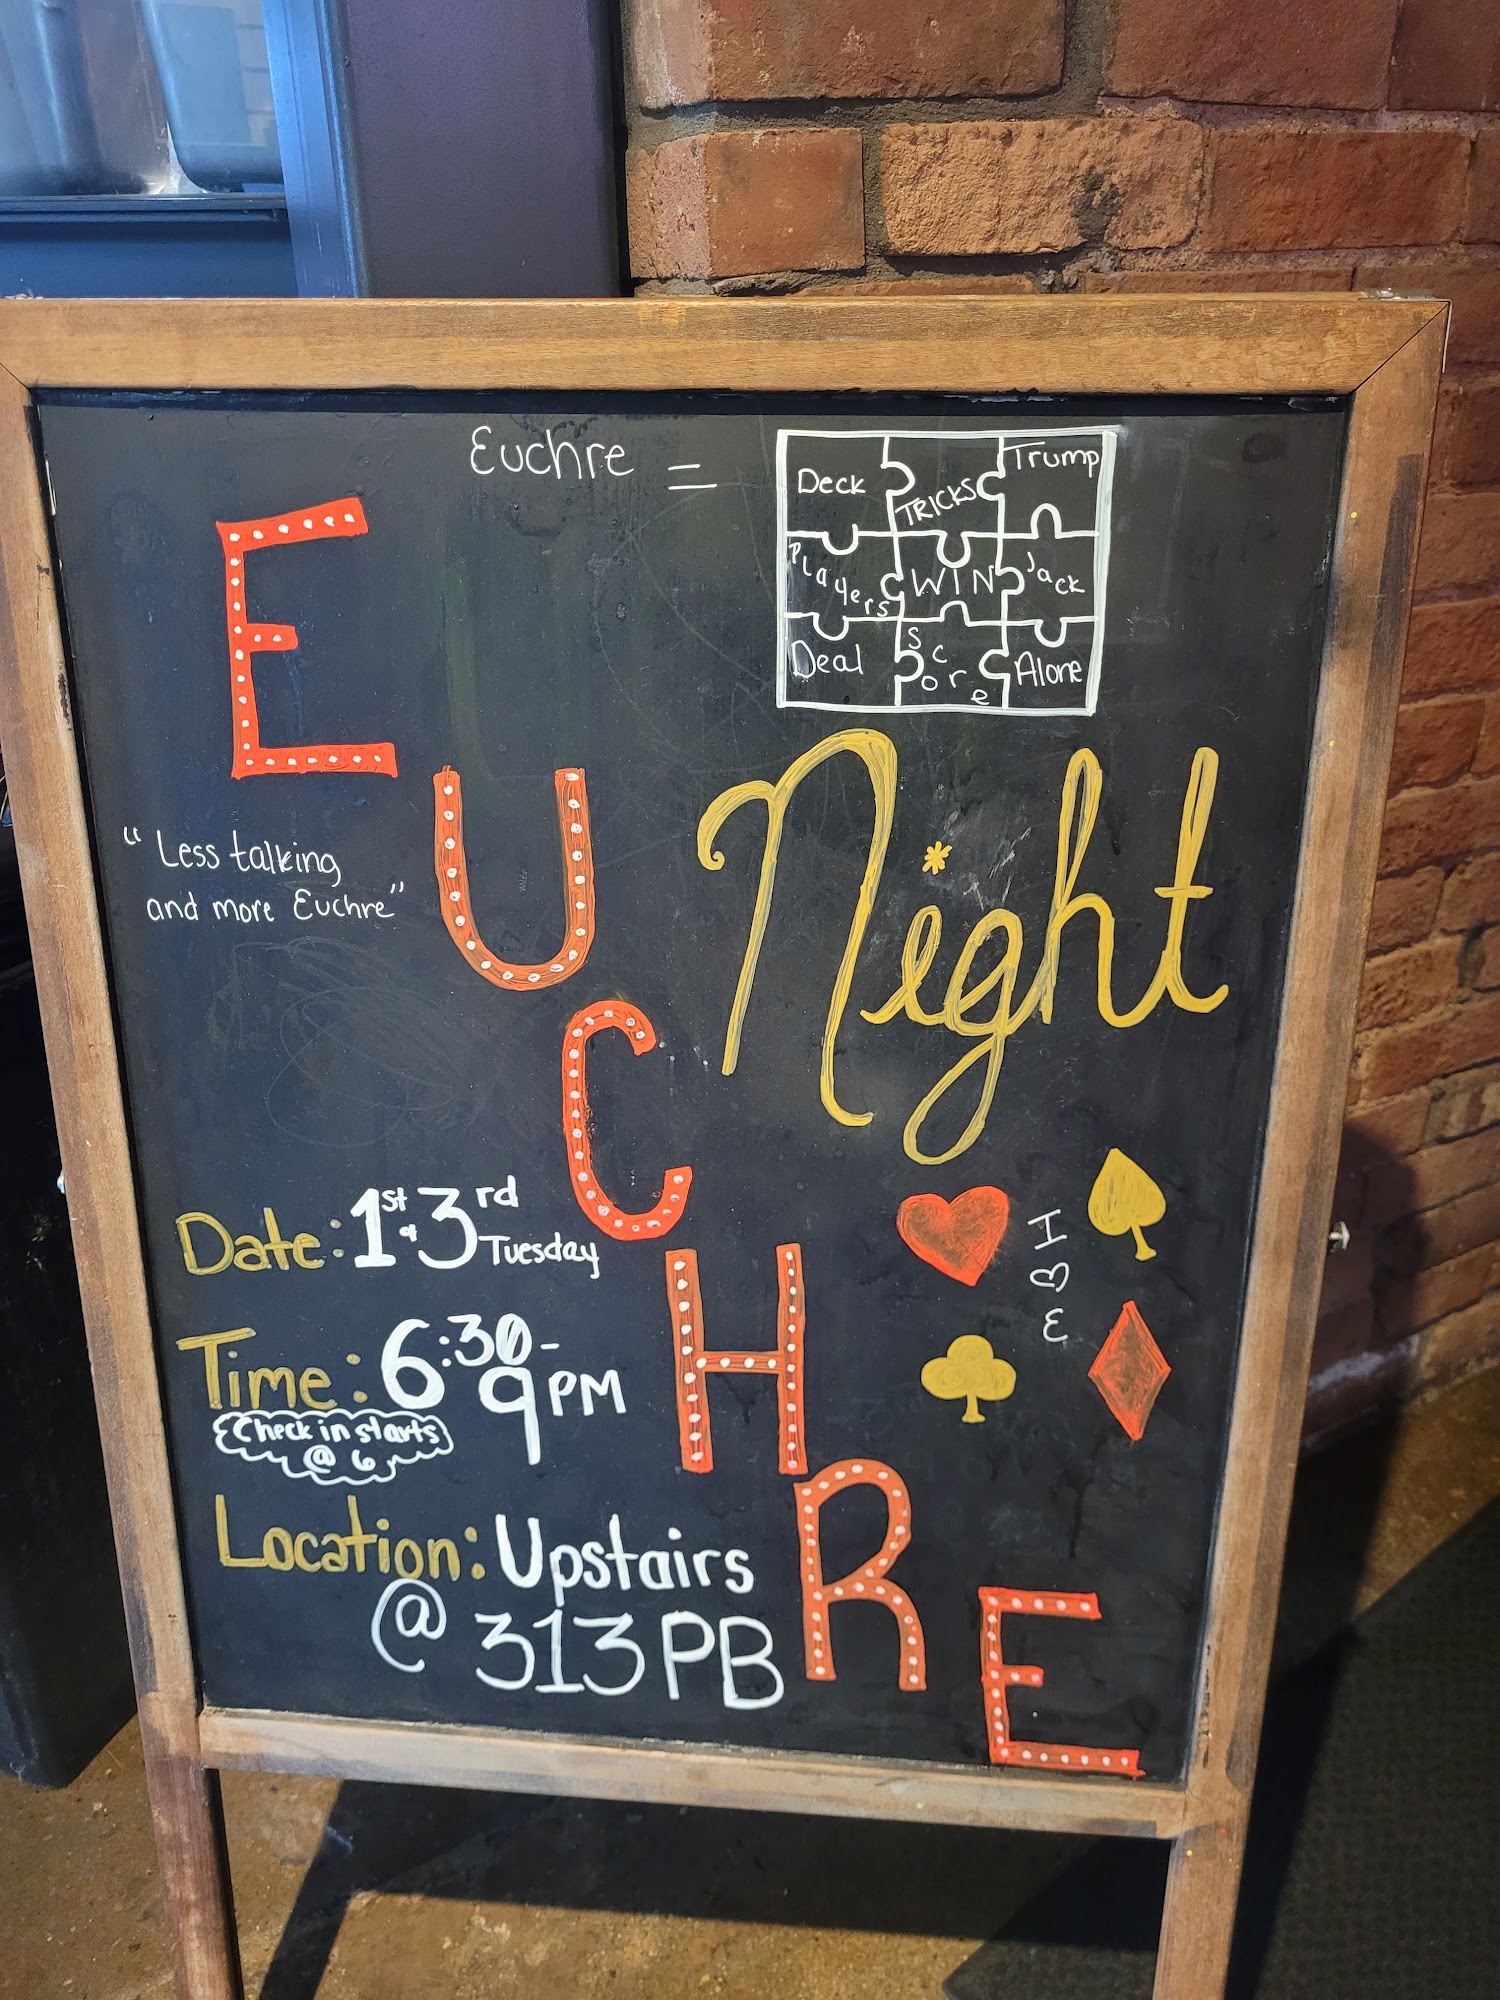 Euchre =
Deck TRICKS Trump
Players WIN Jack
Deal Score Alone
EUCHRE
Night
"Less talking
and more Euchre"
Date: 1st & 3rd
Tuesday
Time: 6:30-
9PM
Check in starts
@ 6
Location: Upstairs
@ 313PB
I ♡ E